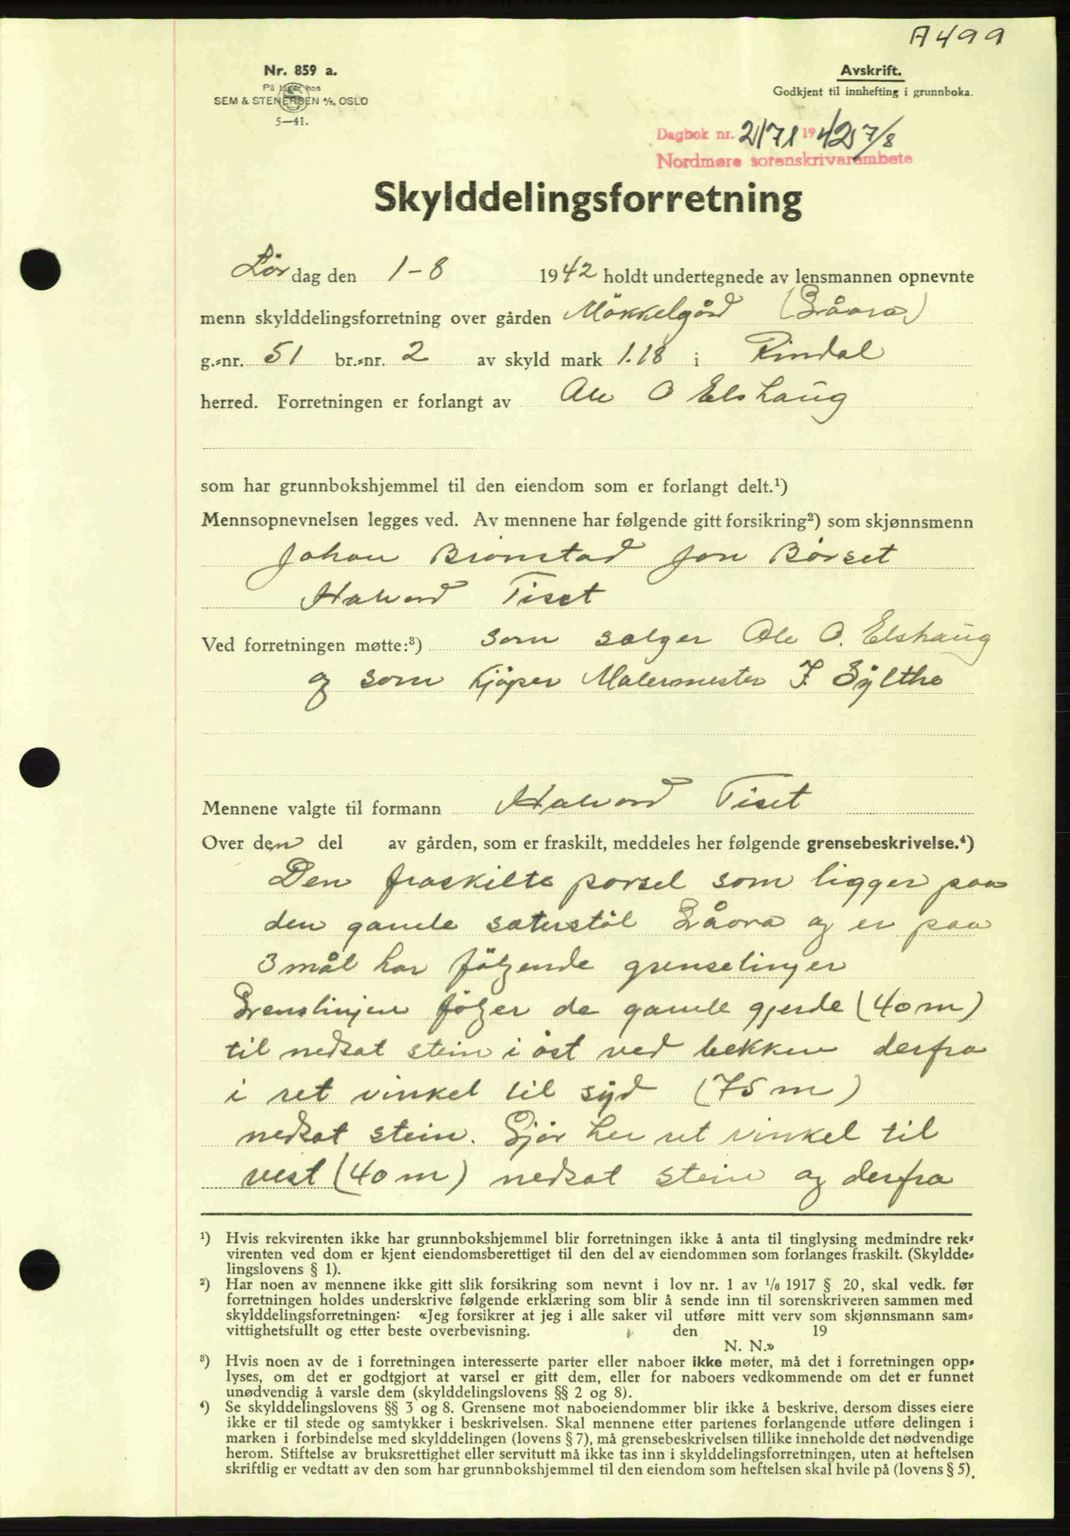 A499
Nr. 859 a.
På lager hos
SEM & STENERSEN A/S, OSLO
5—41.
Avskrift.
Godkjent til innhefting i grunnboka.
Dagbok nr. 2171 1942 7/8
Nordmøre sorenskrivarembete
Skylddelingsforretning
Lör dag den 1-8 1942 holdt undertegnede av lensmannen opnevnte
menn skylddelingsforretning over gården Mökkelgård (Gråora)
g.-nr. 51 br.-nr. 2 av skyld mark 1.18 i Rindal
herred. Forretningen er forlangt av Ole O Elshaug
som har grunnbokshjemmel til den eiendom som er forlangt delt.¹)
Mennsopnevnelsen legges ved. Av mennene har følgende gitt forsikring²) som skjønnsmenn
Johan Brønstad Jon Børset
Halvord Tiset
Ved forretningen møtte:³) som selger Ole O. Elshaug
og som kjöper Malermester J. Sylthe
Mennene valgte til formann Halvord Tiset
Over den del av gården, som er fraskilt, meddeles her følgende grensebeskrivelse.⁴)
Den fraskilte parsel som ligger paa
den gamle sæterstöl Gråora og er paa
3 mål har fölgende grenselinjer
Grenslinjen fölger de gamle gjerde (40 m)
til nedsat stein i öst ved bekken derfra
i ret vinkel til syd (75 m)
nedsat stein. Gjör her ret vinkel til
vest (40 m) nedsat stein og derfra
¹) Hvis rekvirenten ikke har grunnbokshjemmel blir forretningen ikke å anta til tinglysing medmindre rek-
virenten ved dom er kjent eiendomsberettiget til den del av eiendommen som forlanges fraskilt. (Skyldde-
lingslovens § 1).
²) Har noen av mennene ikke gitt slik forsikring som nevnt i lov nr. 1 av 1/6 1917 § 20, skal vedk. før
forretningen holdes underskrive følgende erklæring som blir å sende inn til sorenskriveren sammen med
skylddelingsforretningen: «Jeg forsikrer at jeg i alle saker vil utføre mitt verv som skjønnsmann sam-
vittighetsfullt og etter beste overbevisning. den 19
N. N.»
³) Hvis noen av de i forretningen interesserte parter eller naboer ikke møter, må det i forretningen opp-
lyses, om det er godtgjort at varsel er gitt dem, eller for naboers vedkommende om det er funnet
unødvendig å varsle dem (skylddelingslovens §§ 2 og 8).
⁴) Se skylddelingslovens §§ 3 og 8. Grensene mot naboeiendommer blir ikke å beskrive, dersom disses eiere
ikke er til stede og samtykker i beskrivelsen. Skal mennene etter partenes forlangende utføre delingen i
marken i forbindelse med skylddelingen (lovens § 7), må grensebeskrivelsen tillike inneholde det nødvendige
herom. Stiftelse av bruksrettighet eller servitutt må ikke tas inn i skylddelingsforretningen, uten at heftelsen
skriftlig er vedtatt av den som har grunnbokshjemmel til den eiendom som heftelsen skal hvile på (lovens § 5).